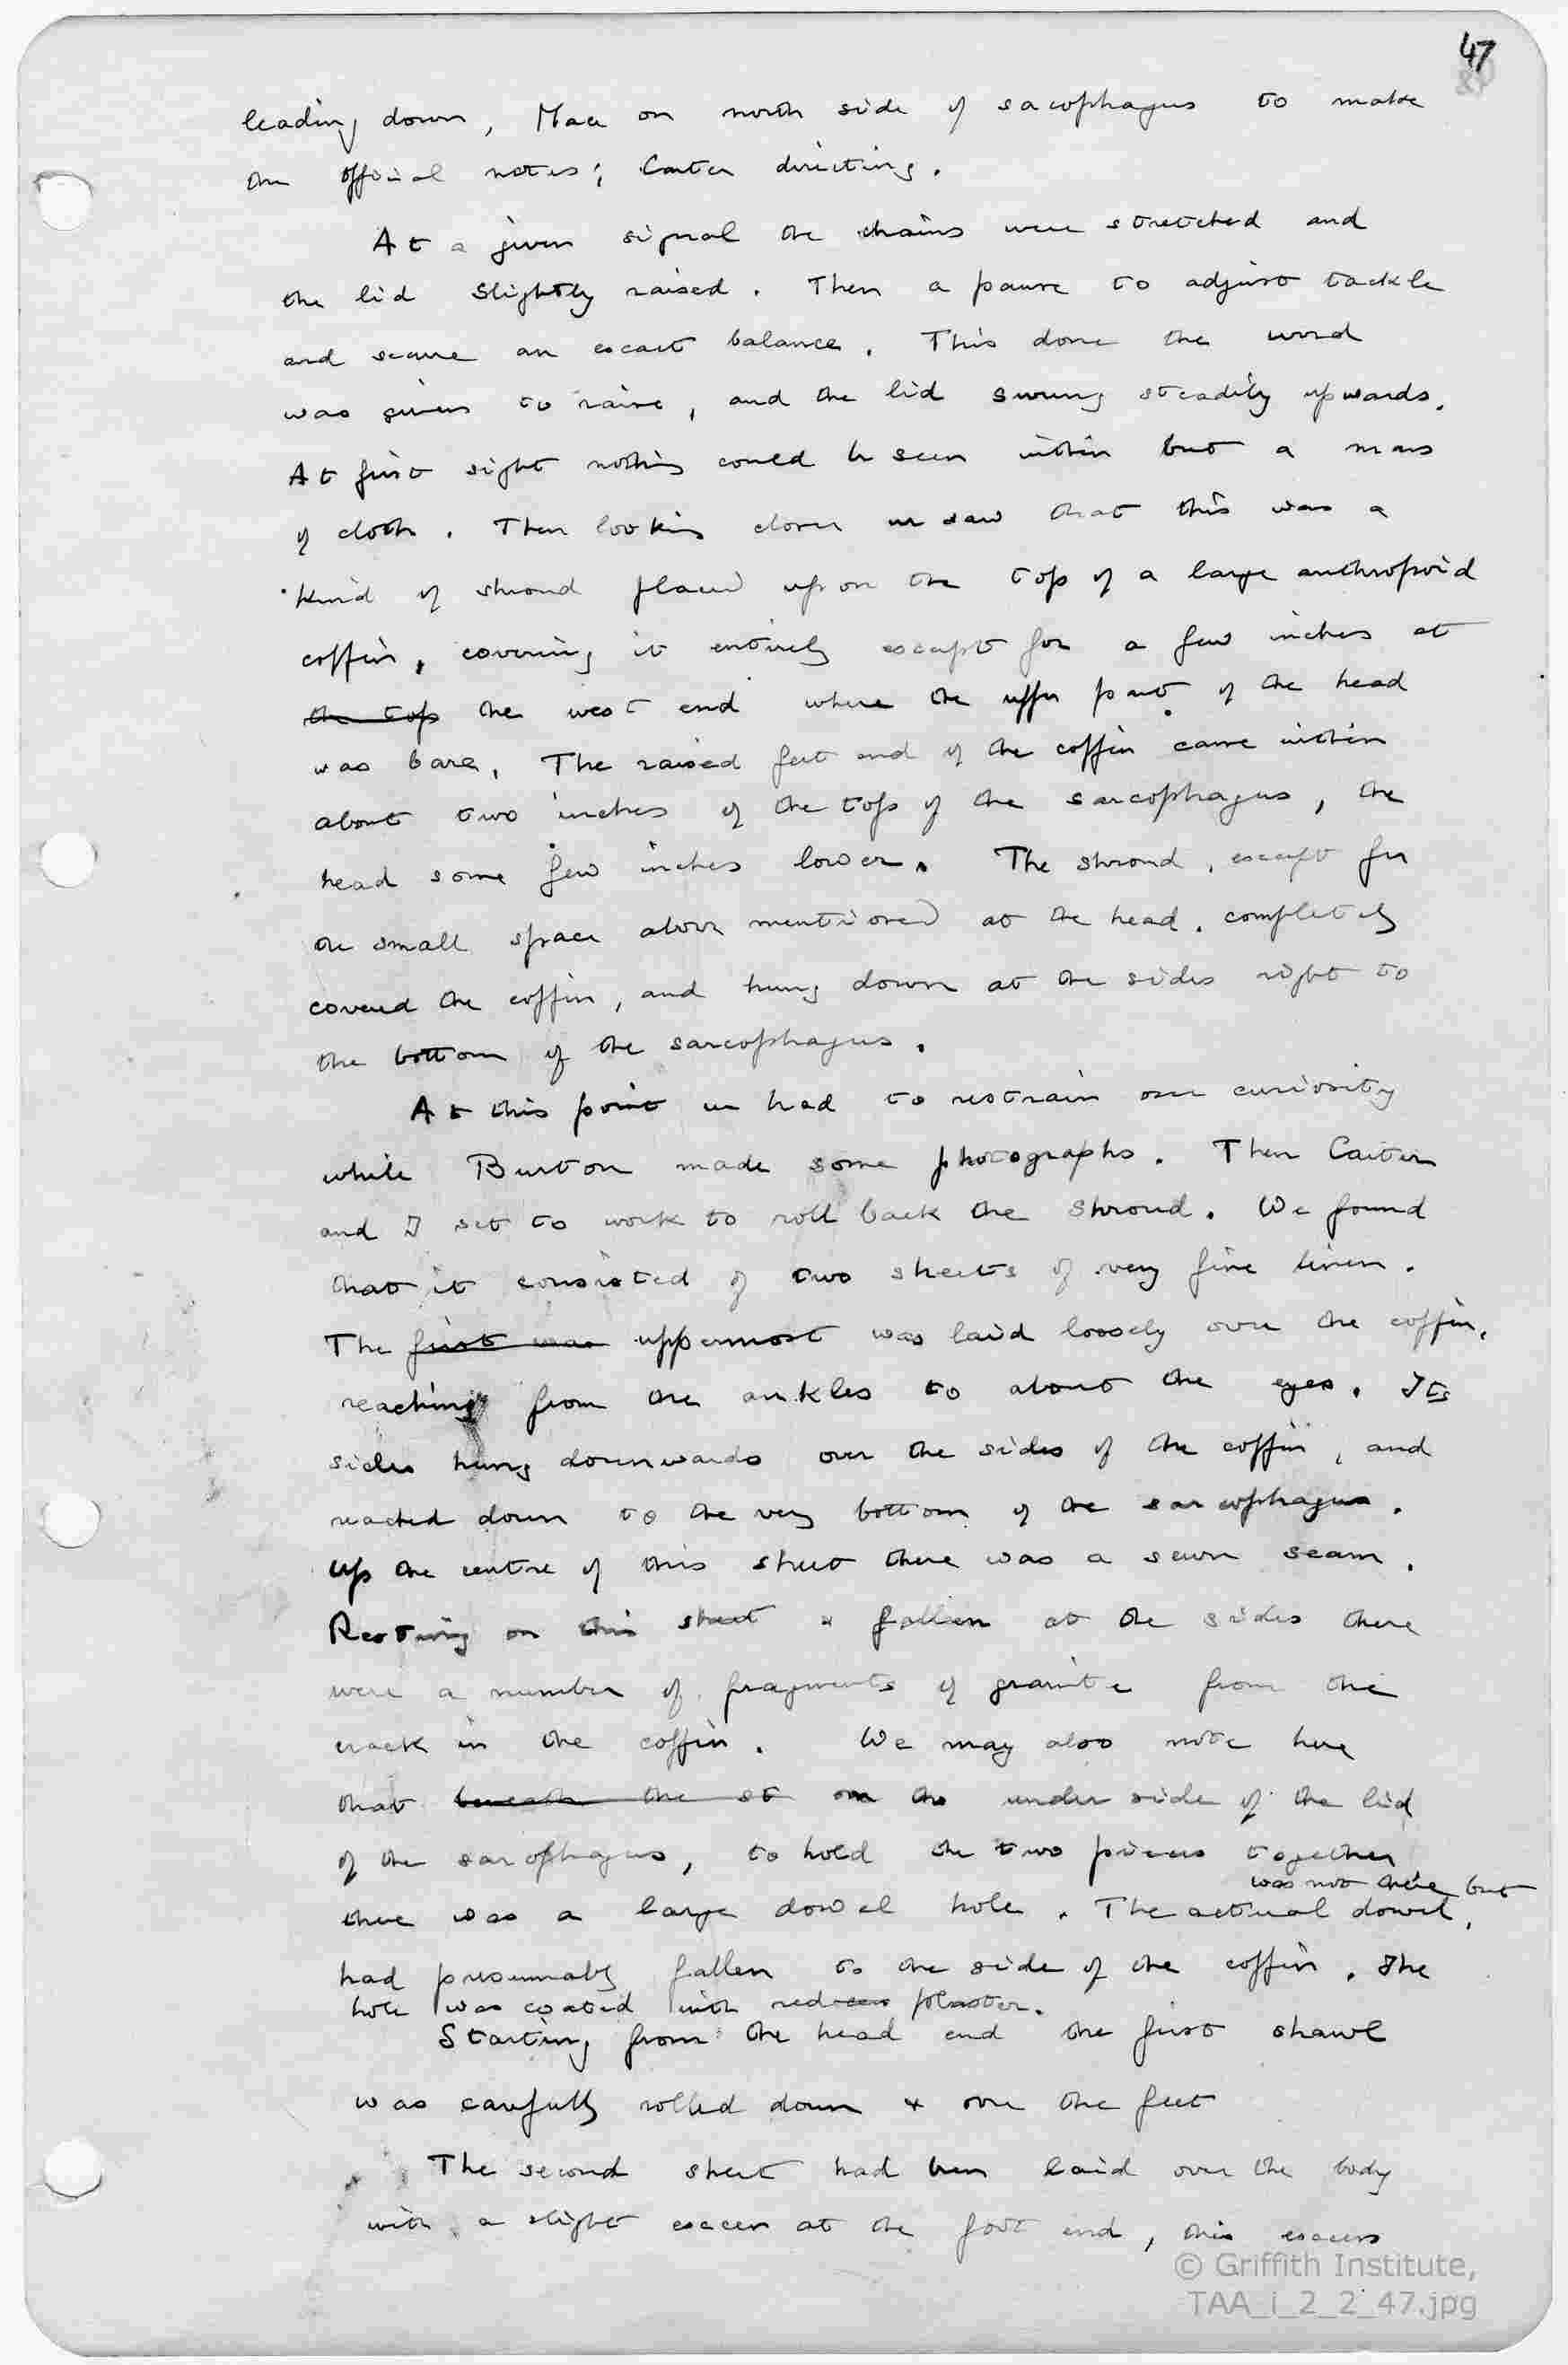 47
leading down, Mace on north side of sacophagus to make
the official notes; Carter directing.
At a given signal the chains were stretched and
the lid slightly raised. Then a pause to adjust tackle
and secure an exact balance. This done the word
was given to raise, and the lid swung steadily upwards.
At first sight nothing could be seen within but a mass
of cloth. Then looking closer we saw that this was a
kind of shroud placed upon the top of a large anthropoid
coffin, covering it entirely except for a few inches at
the top the west end where the upper part of the head
was bare. The raised feet end of the coffin came within
about two inches of the top of the sarcophagus, the
head some few inches lower. The shroud, except for
the small space above mentioned at the head, completely
covered the coffin, and hung down at the sides right to
the bottom of the sarcophagus.
At this point we had to restrain our curiosity
while Burton made some photographs. Then Carter
and I set to work to roll back the shroud. We found
that it consisted of two sheets of very fine linen.
The first was uppermost was laid loosely over the coffin,
reaching from the ankles to about the eyes. Its
sides hung downwards over the sides of the coffin, and
reached down to the very bottom of the sarcophagus.
Up the centre of this sheet there was a sewn seam.
Resting on this sheet & fallen at the sides there
were a number of fragments of granite from the
crack in the coffin. We may also note here
that beneath the st on the under side of the lid
of the sarcophagus, to hold the two pieces together
was not there but
there was a large dowel hole. The actual dowel,
had presumably fallen to the side of the coffin. The
hole was coated with red plaster.
Starting from the head end the first shawl
was carefully rolled down & over the feet
The second sheet had been laid over the body
with a slight excess at the foot end, this excess
© Griffith Institute,
TAA_i_2_2_47.jpg